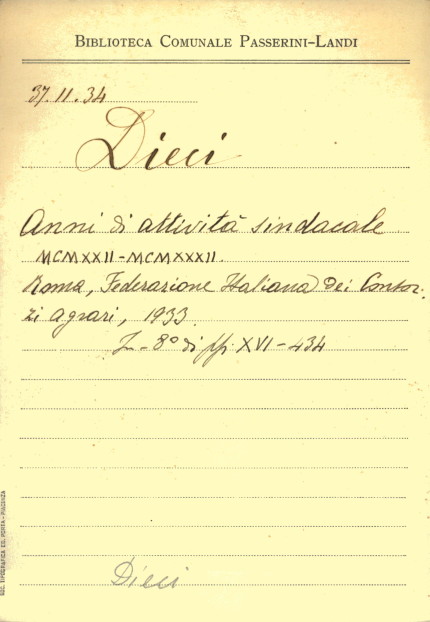 BIBLIOTECA COMUNALE PASSERINI-LANDI
37.11.34
Dieci
Anni di attività sindacale
MCMXXII-MCMXXXII.
Roma, Federazione Italiana dei Consor-
zi agrari, 1933.
8º di pp. XVI-434
Dieci
SOC. TIPOGRAFICA ED. PORTA - PIACENZA